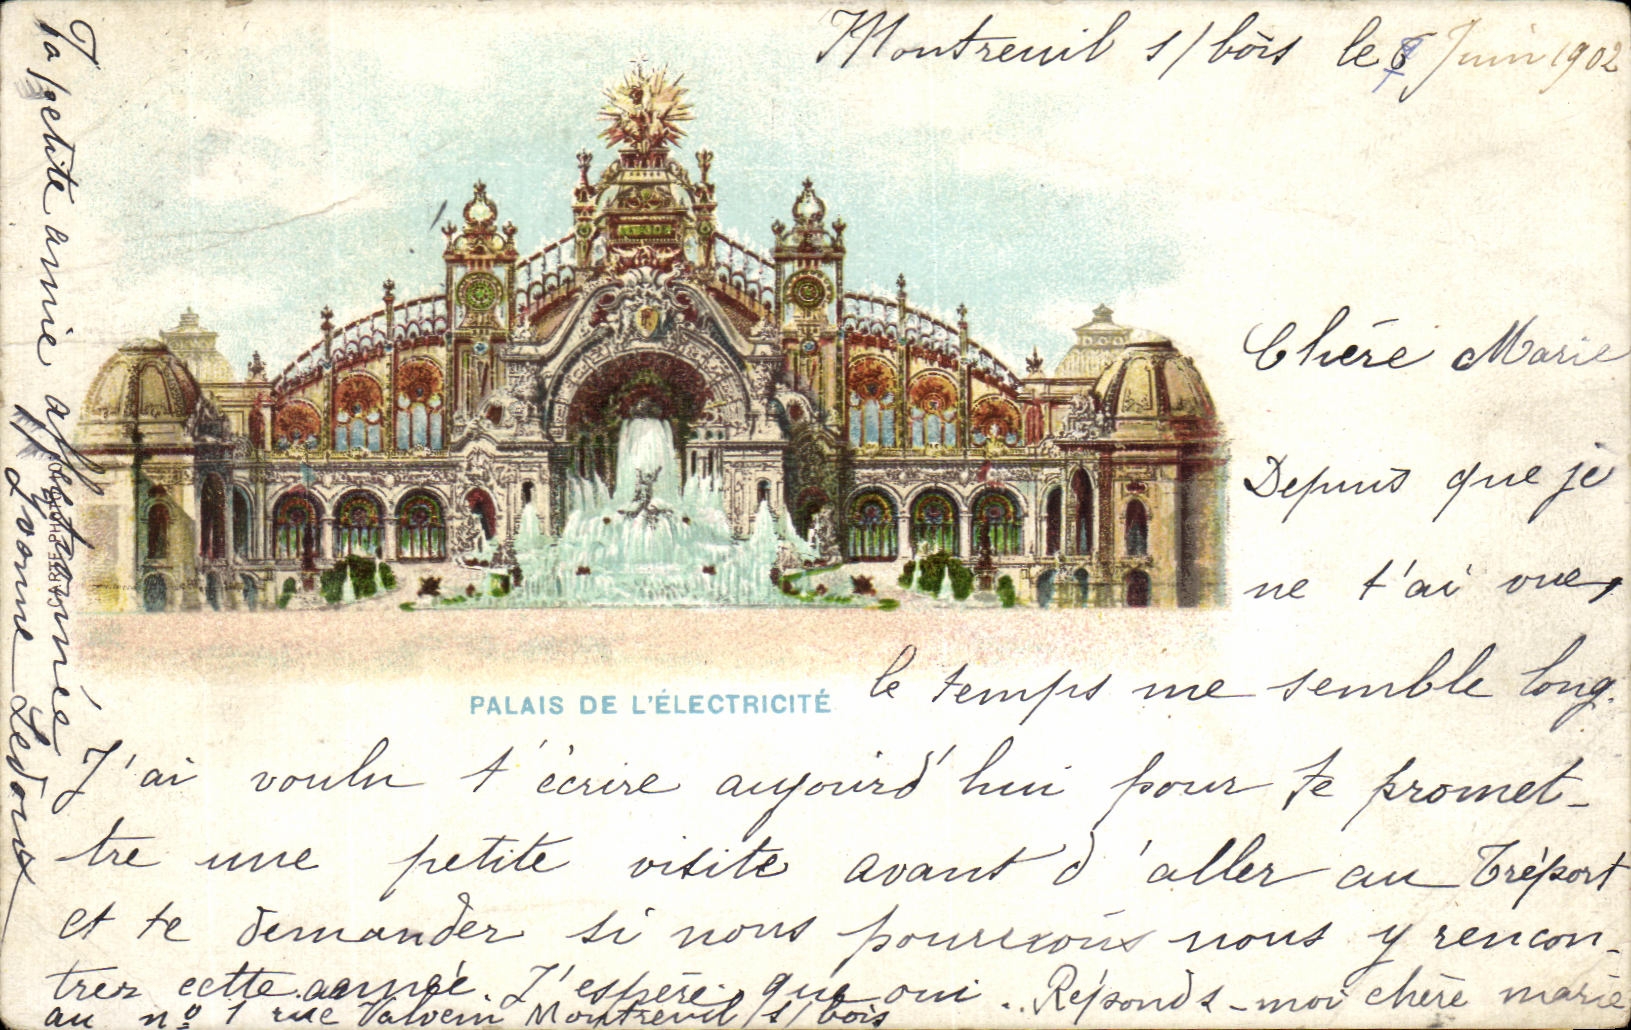 Montreuil s/bois le 8 Juin 1902
Chère Marie
Depuis que je
ne t'ai vue,
le temps me semble long.
PALAIS DE L'ÉLECTRICITÉ
J'ai voulu t'écrire aujourd'hui pour te promet-
tre une petite visite avant d'aller au Tréport
et te demander si nous pourrions nous y rencon-
trer cette année. J'espère que oui. Réponds-moi chère marie
au nº 1 rue Montreuil s/bois
Ta petite amie affectionnée
Yvonne Ledoux